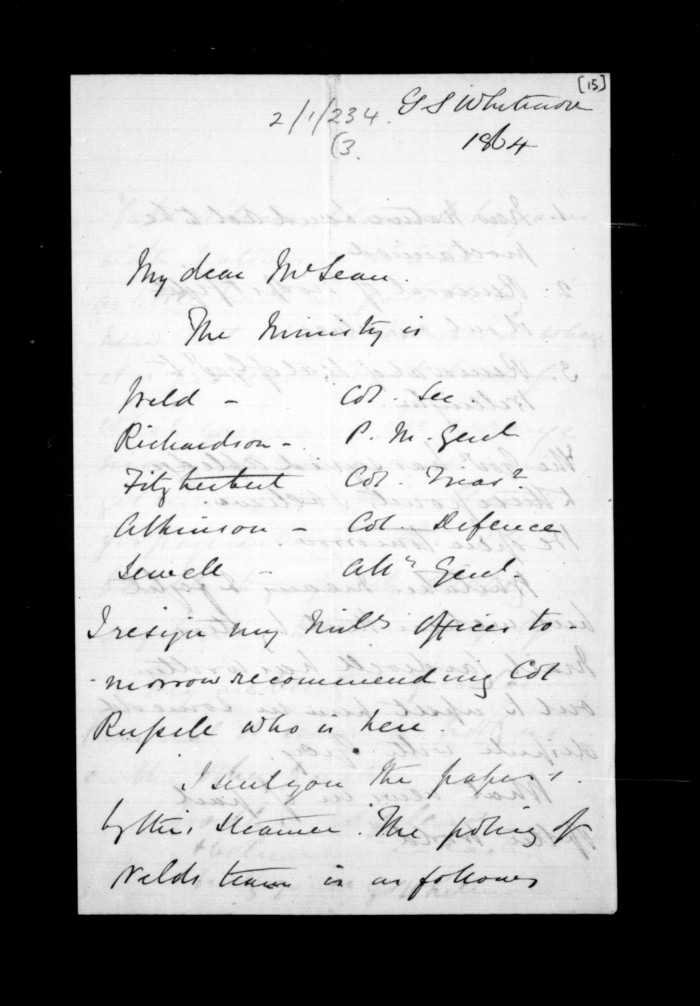 [15]
2/1/234. G S Whitmore
(3. 1864
My dear McLean.
The Ministry is
Weld - Col. Sec.
Richardson - P. M. Genl
Fitzherbert Col. Treasr
Atkinson - Col. Defence
Sewell - Attr Genl.
I resign my Mil. Offices to-
-morrow recommending Col
Russell who is here.
I send you the papers.
by this Steamer. The policy of
Welds team is as follows